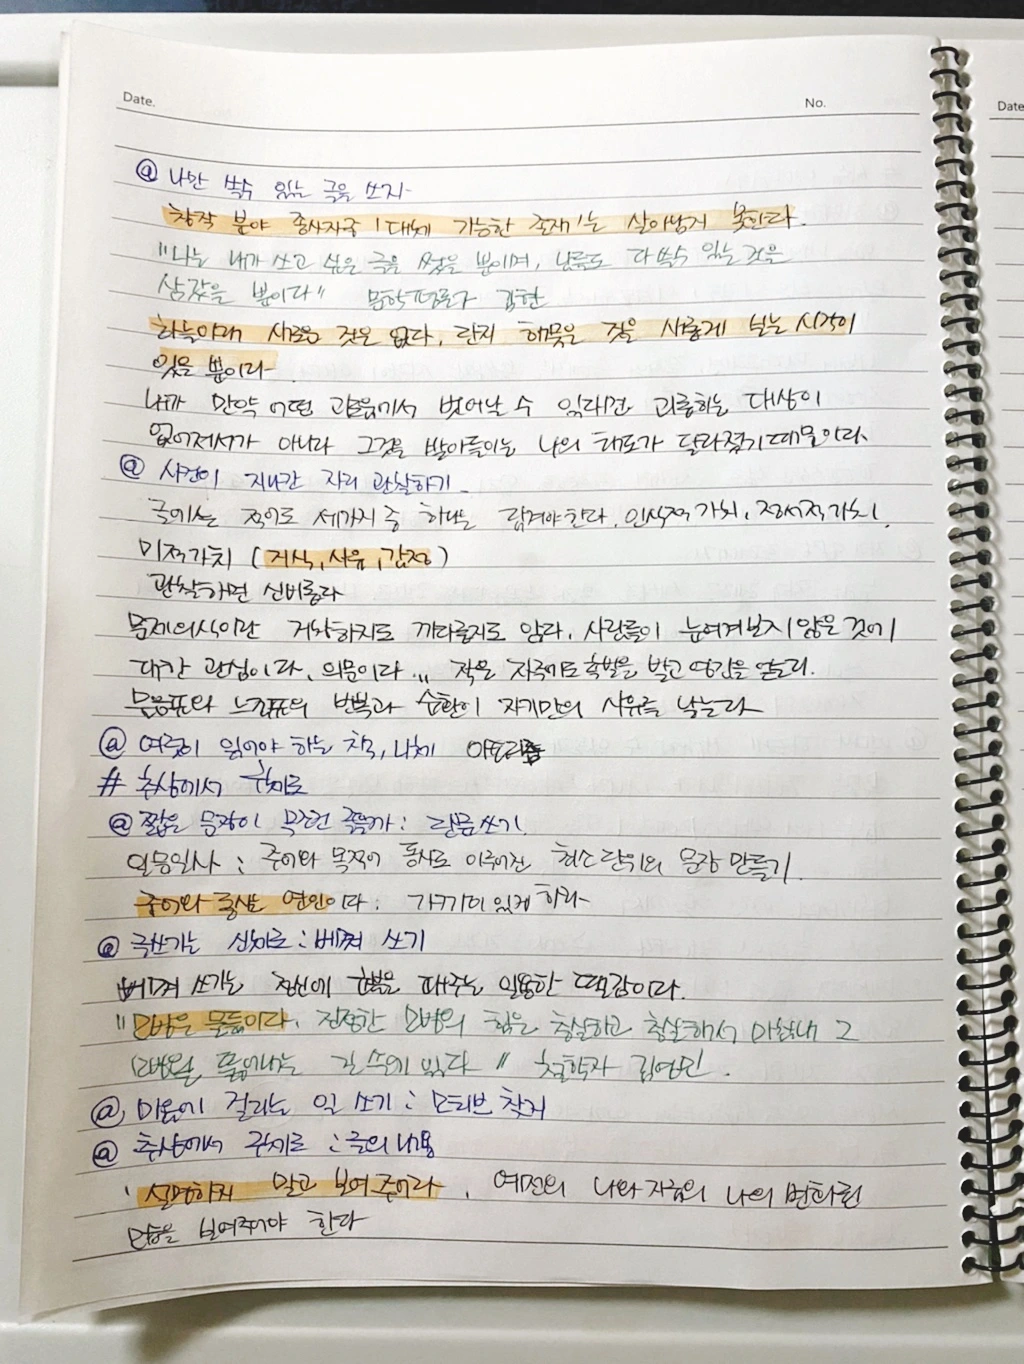 Date.
No.
Date
@ 나만 쓸수 있는 글을 쓰자
창작 분야 종사자중 '대체 가능한 존재'는 살아남지 못한다.
"나는 내가 쓰고 싶은 글을 썼을 뿐이며, 남들도 다 쓸수 있는 것은
삼갔을 뿐이다" 문학평론가 김현
하늘아래 새로운 것은 없다, 단지 해묵은 것을 새롭게 보는 시각이
있을 뿐이다.
내가 만약 어떤 괴로움에서 벗어날 수 있다면 괴롭히는 대상이
없어져서가 아니라 그것을 받아들이는 나의 태도가 달라졌기 때문이다.
@ 사건이 지나간 자리 관찰하기.
글에서는 적어도 세가지 중 하나는 담겨야한다, 인식적가치, 정서적가치,
미적가치 (지식, 사유, 감정)
관찰하면 신비롭다
문제의식이란 거창하지도 까다롭지도 않다, 사람들이 눈여겨보지 않은 것에
대한 관심이다, 의문이다... 작은 자극에도 촉발을 받고 영감을 얻는다.
물음표와 느낌표의 반복과 순환이 자기만의 사유를 낳는다
@ 여럿이 읽어야 하는 책, 니체
# 추상에서 구체로
@ 짧은 문장이 무조건 좋은가 : 단문쓰기.
일문일사 : 주어와 목적어 동사로 이루어진 최소 단위의 문장 만들기
주어와 동사는 연인이다 : 가까이 있게 하라
@ 글쓰기는 신체로 : 베껴 쓰기
베껴 쓰기는 정신에 불을 때주는 유용한 땔감이다.
"모방은 물듦이다, 진정한 모방의 힘은 충실하고 충실해서 마침내 그
모방을 뚫어내는 길 속에 있다" 철학자 김영민.
@ 마음에 걸리는 일 쓰기 : 모티브 찾기
@ 추상에서 구체로 : 글의 내용
'설명하지 말고 보여주어라, 예전의 나와 지금의 나의 변화된
모습을 보여주어야 한다